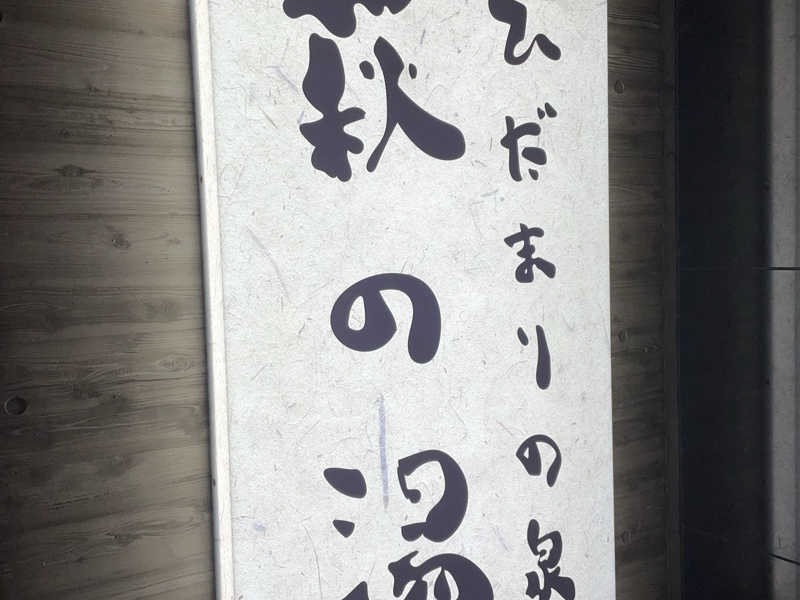 ひだまりの泉
萩の湯